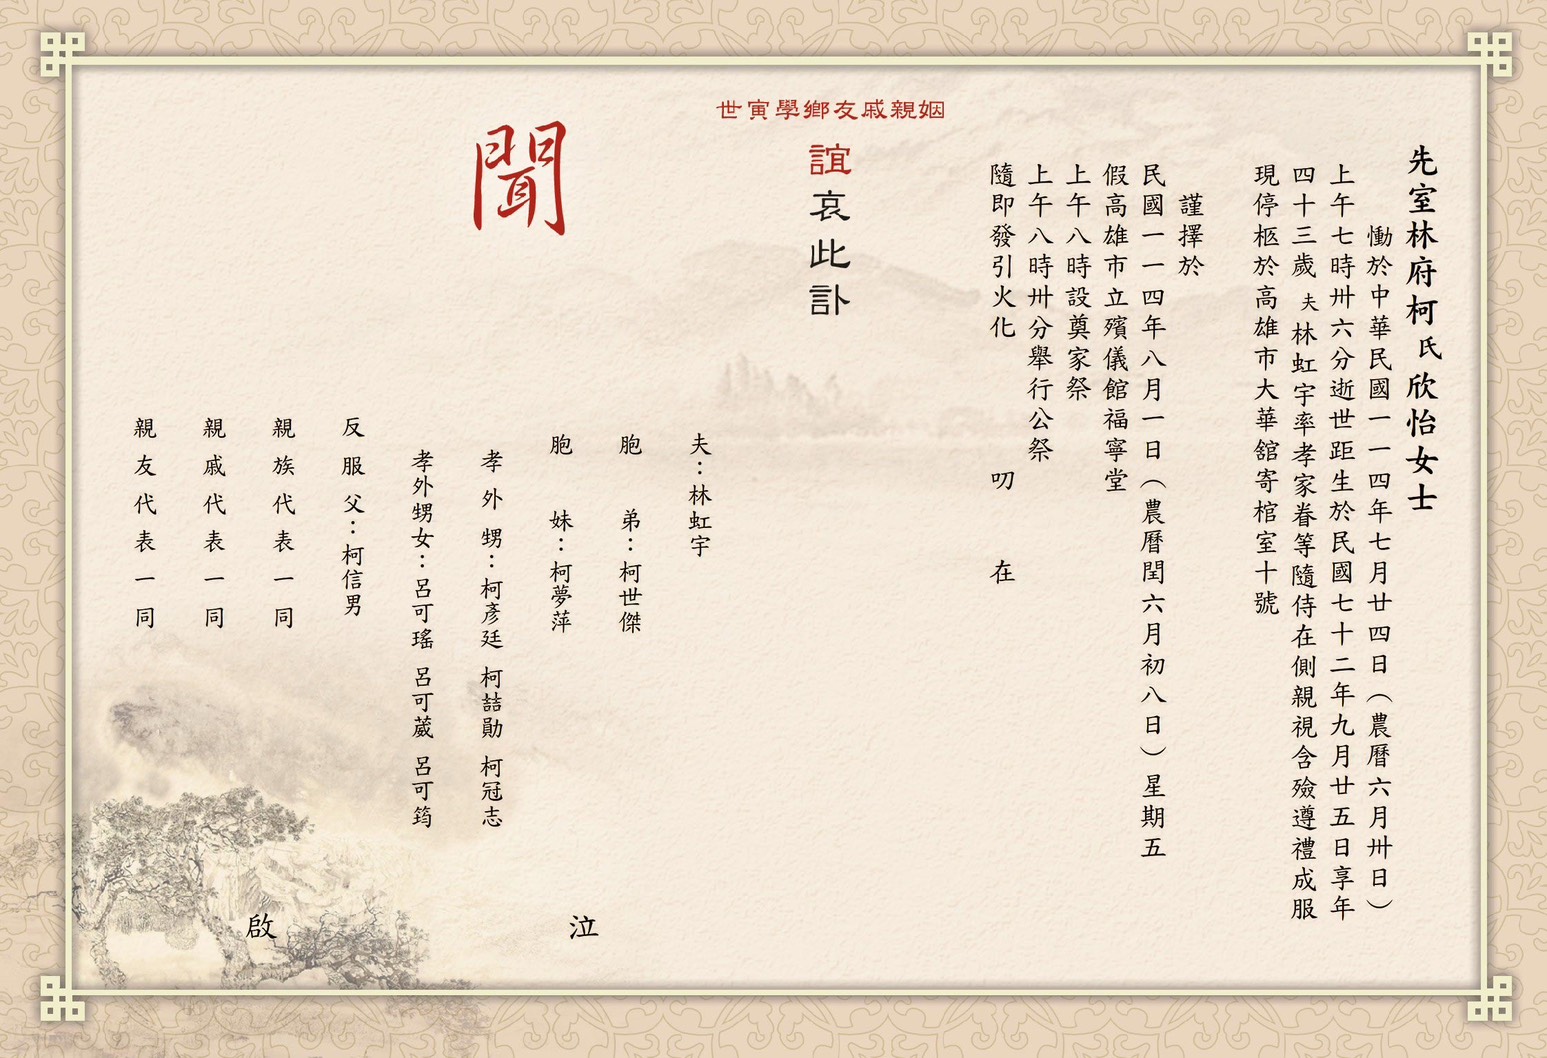 先室林府柯氏欣怡女士
慟於中華民國一一四年七月廿四日（農曆六月卅日）
上午七時卅六分逝世距生於民國七十二年九月廿五日享年
四十三歲 夫林虹宇率孝家眷等隨侍在側親視含殮遵禮成服
現停柩於高雄市大華舘寄棺室十號
謹擇於
民國一一四年八月一日（農曆閏六月初八日）星期五
假高雄市立殯儀館福寧堂
上午八時設奠家祭
上午八時卅分舉行公祭
隨即發引火化 叨 在
姻親戚友鄉學寅世
誼哀此訃
聞
夫：林虹宇
胞弟：柯世傑
胞妹：柯夢萍
孝外甥：柯彥廷 柯喆勛 柯冠志
孝外甥女：呂可瑤 呂可葳 呂可筠
反服父：柯信男
親族代表一同
親戚代表一同
親友代表一同
泣
啟